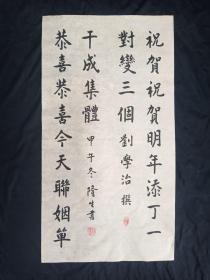 祝賀祝賀明年添丁一
對變三個劉學治撰
干成集體甲午冬隆生書
恭喜恭喜今天聯姻單